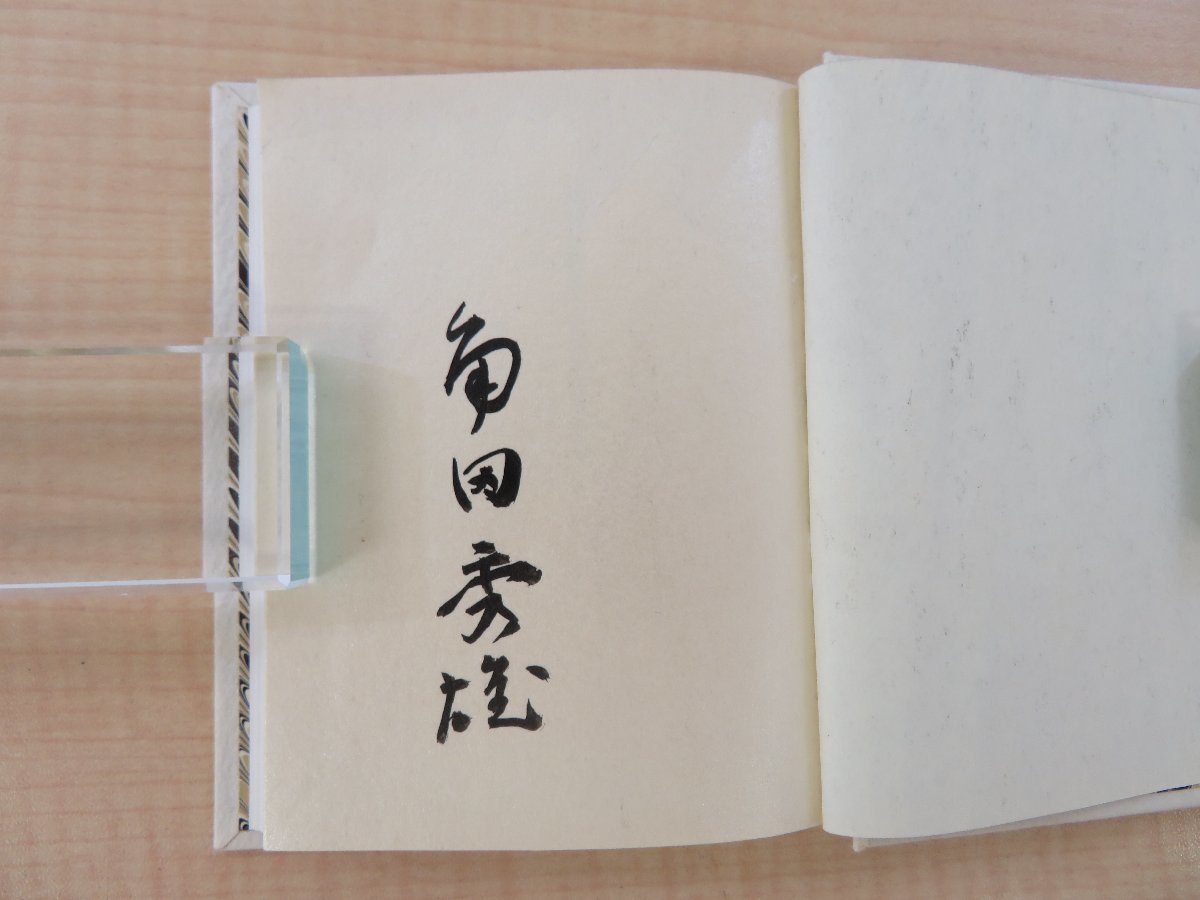 角田秀雄